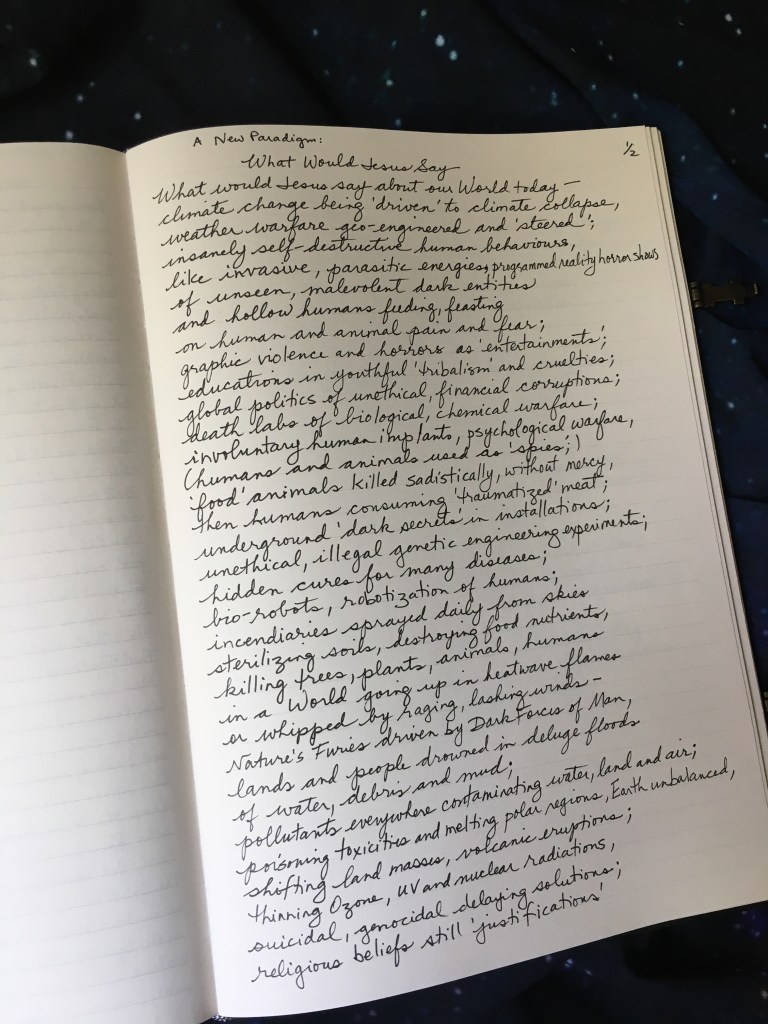 A New Paradigm:
1/2
What Would Jesus Say
What would Jesus say about our World today —
climate change being 'driven' to climate collapse,
weather warfare geo-engineered and 'steered';
insanely self-destructive human behaviours,
like invasive, parasitic energies, programmed reality horror shows
of unseen, malevolent dark entities
and hollow humans feeding, feasting
on human and animal pain and fear;
graphic violence and horrors as 'entertainments';
educations in youthful 'tribalism' and cruelties;
global politics of unethical, financial corruptions;
death labs of biological, chemical warfare;
involuntary human implants, psychological warfare,
(humans and animals used as 'spies';)
'food' animals killed sadistically, without mercy,
then humans consuming 'traumatized' meat;
underground 'dark secrets' in installations;
unethical, illegal genetic engineering experiments;
hidden cures for many diseases;
bio-robots, robotization of humans;
incendiaries sprayed daily from skies
sterilizing soils, destroying food nutrients,
killing trees, plants, animals, humans
in a World going up in heatwave flames
or whipped by raging, lashing winds —
Nature's Furies driven by Dark Forces of Man,
lands and people drowned in deluge floods
of water, debris and mud;
pollutants everywhere contaminating water, land and air;
poisoning toxicities and melting polar regions, Earth unbalanced,
shifting land masses, volcanic eruptions;
thinning Ozone, UV and nuclear radiations,
suicidal, genocidal delaying solutions;
religious beliefs still 'justifications'